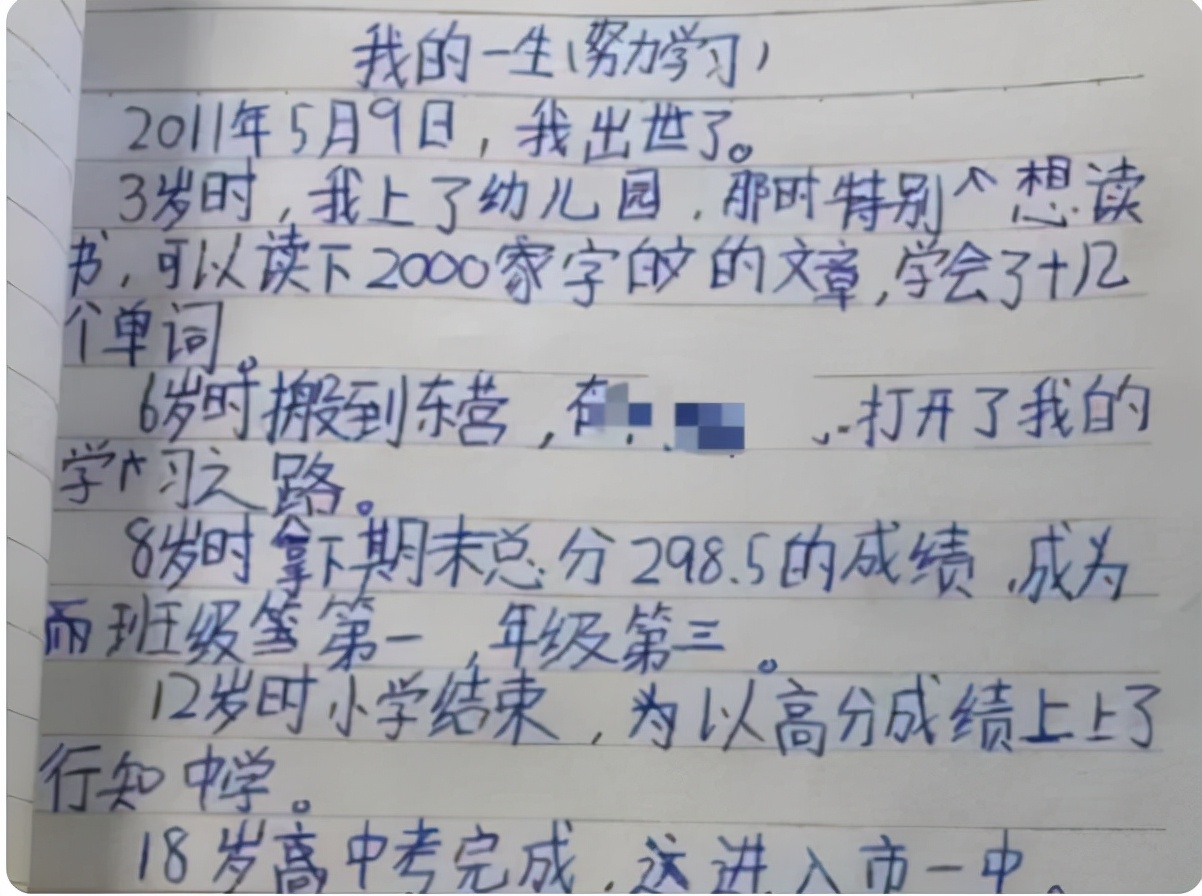 我的一生(努力学习)
2011年5月9日，我出世了。
3岁时，我上了幼儿园，那时特别^想读
书，可以读下2000家字的文的文章，学会了十几
个单词。
6岁时搬到东营，在 打开了我的
学习之路。
8岁时拿下期末总分298.5的成绩，成为
而班级第一，年级第三。
12岁时小学结束，为以高分成绩上上了
行知中学。
18岁高中考完成，进入市一中。